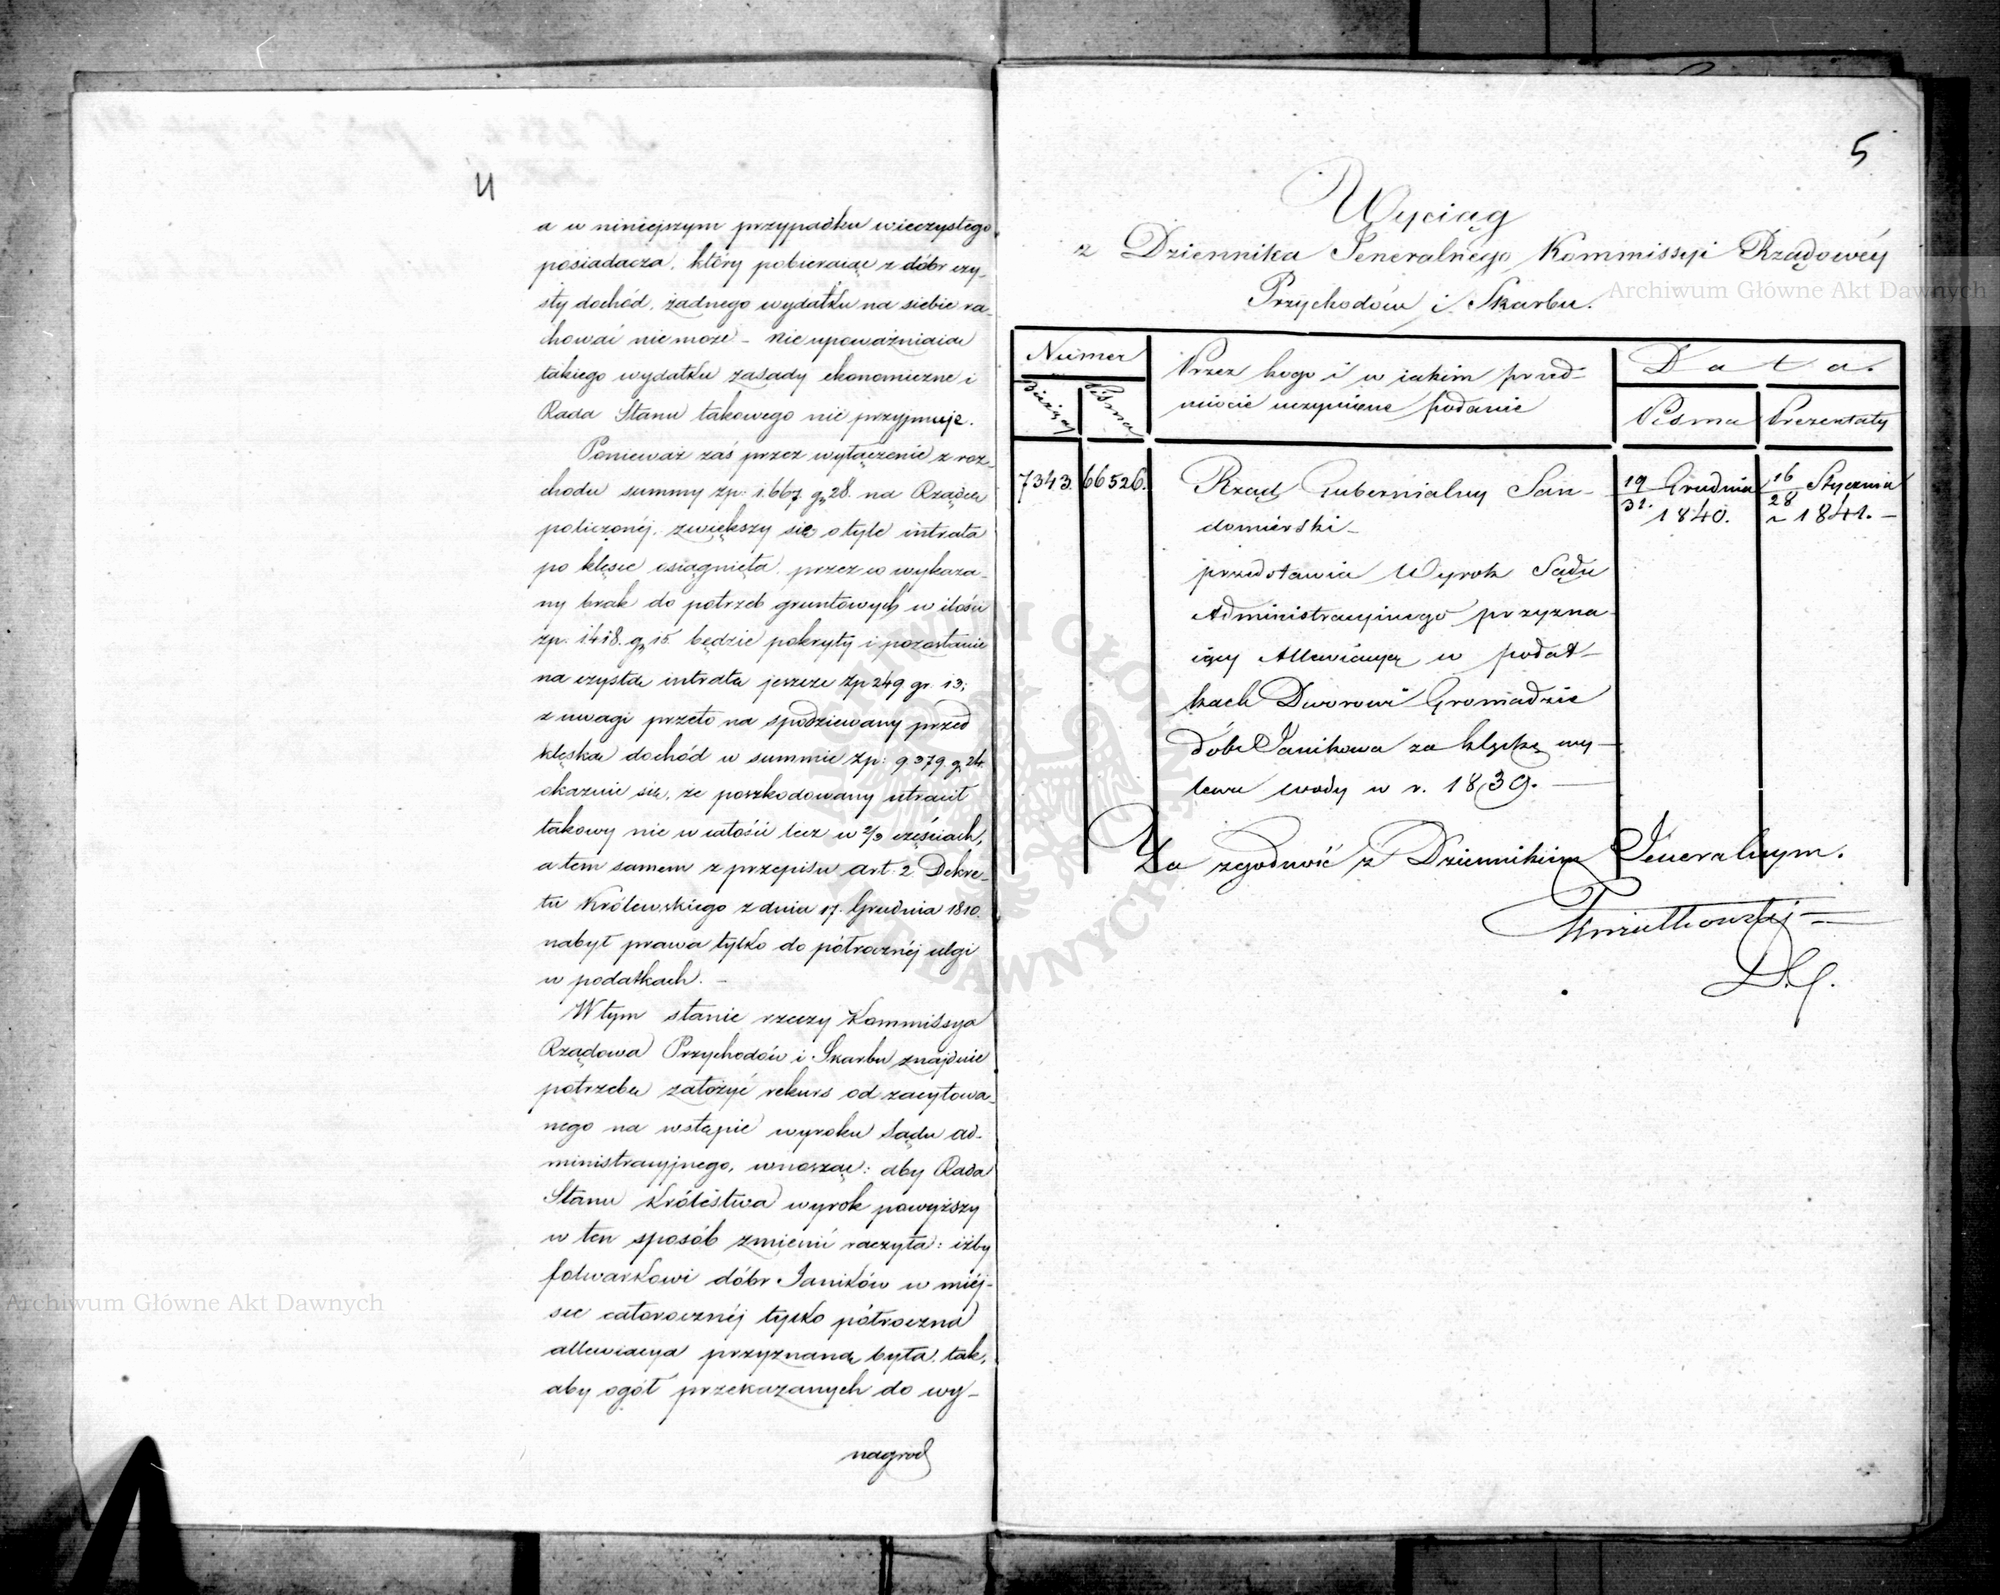 4
a w niniejszym przypadku wieczystego
posiadacza, który pobieraiąc z dóbr czy-
sty dochód, żadnego wydatku na siebie ra-
chować nie może – nie upoważniaią
takiego wydatku zasady ekonomiczne i
Rada Stanu takowego nie przyjmuje.
Ponieważ zaś przez wyłączenie z roz-
chodu summy zp. 1.667. gr 28. na Rządcę
policzonéj, zwiększy się o tyle intrata
po klęsce osiągnięta, przez co wykaza-
ny brak do potrzeb gruntowych w ilości
zp. 1418. gr 15. będzie pokryty i pozostanie
na czystą intratę jeszcze zp 249 gr. 13;
z uwagi przeto na spodziewany przed
klęską dochód w summie zp: 9379. gr 24.
okazuie się, że poszkodowany utracił
takowy nie w całości lecz w 2/3 częściach,
a tem samem z przepisu art. 2 Dekre-
tu Królewskiego z dnia 17. Grudnia 1810.
nabył prawa tylko do półrocznéj ulgi
w podatkach. –
W tym stanie rzeczy Kommissya
Rządowa Przychodów i Skarbu znajduie
potrzebę założyć rekurs od zacytowa-
nego na wstępie wyroku Sądu ad-
ministracyjnego, wnosząc: aby Rada
Stanu Królestwa wyrok powyższy
w ten sposób zmienić raczyła: iżby
folwarkowi dóbr Janików w miéj-
sce całorocznéj tylko półroczna
allewiacya przyznaną była, tak,
aby ogół przekazanych do wy-
nagrod
5
Wyciąg
z Dziennika Jeneralnego Kommissyi Rządowéy
Przychodów i Skarbu.
Archiwum Główne Akt Dawnych
Numer
Bieżący
Pisma
Przez kogo i w iakim przed-
miocie uczynione podanie
Data.
Pisma
Prezentaty
7343.
66526.
Rząd Gubernialny San-
domierski –
przedstawia Wyrok Sądu
Administracyjnego przyzna-
iący Allewiacyą w podat-
kach Dworowi Gromadzie
dóbr Janikowa za klęskę wy-
lewu wody w r. 1839. –
19/31. Grudnia
1840.
16/28 Stycznia
1841. –
Za zgodność z Dziennikiem Jeneralnym.
Archiwum Główne Akt Dawnych